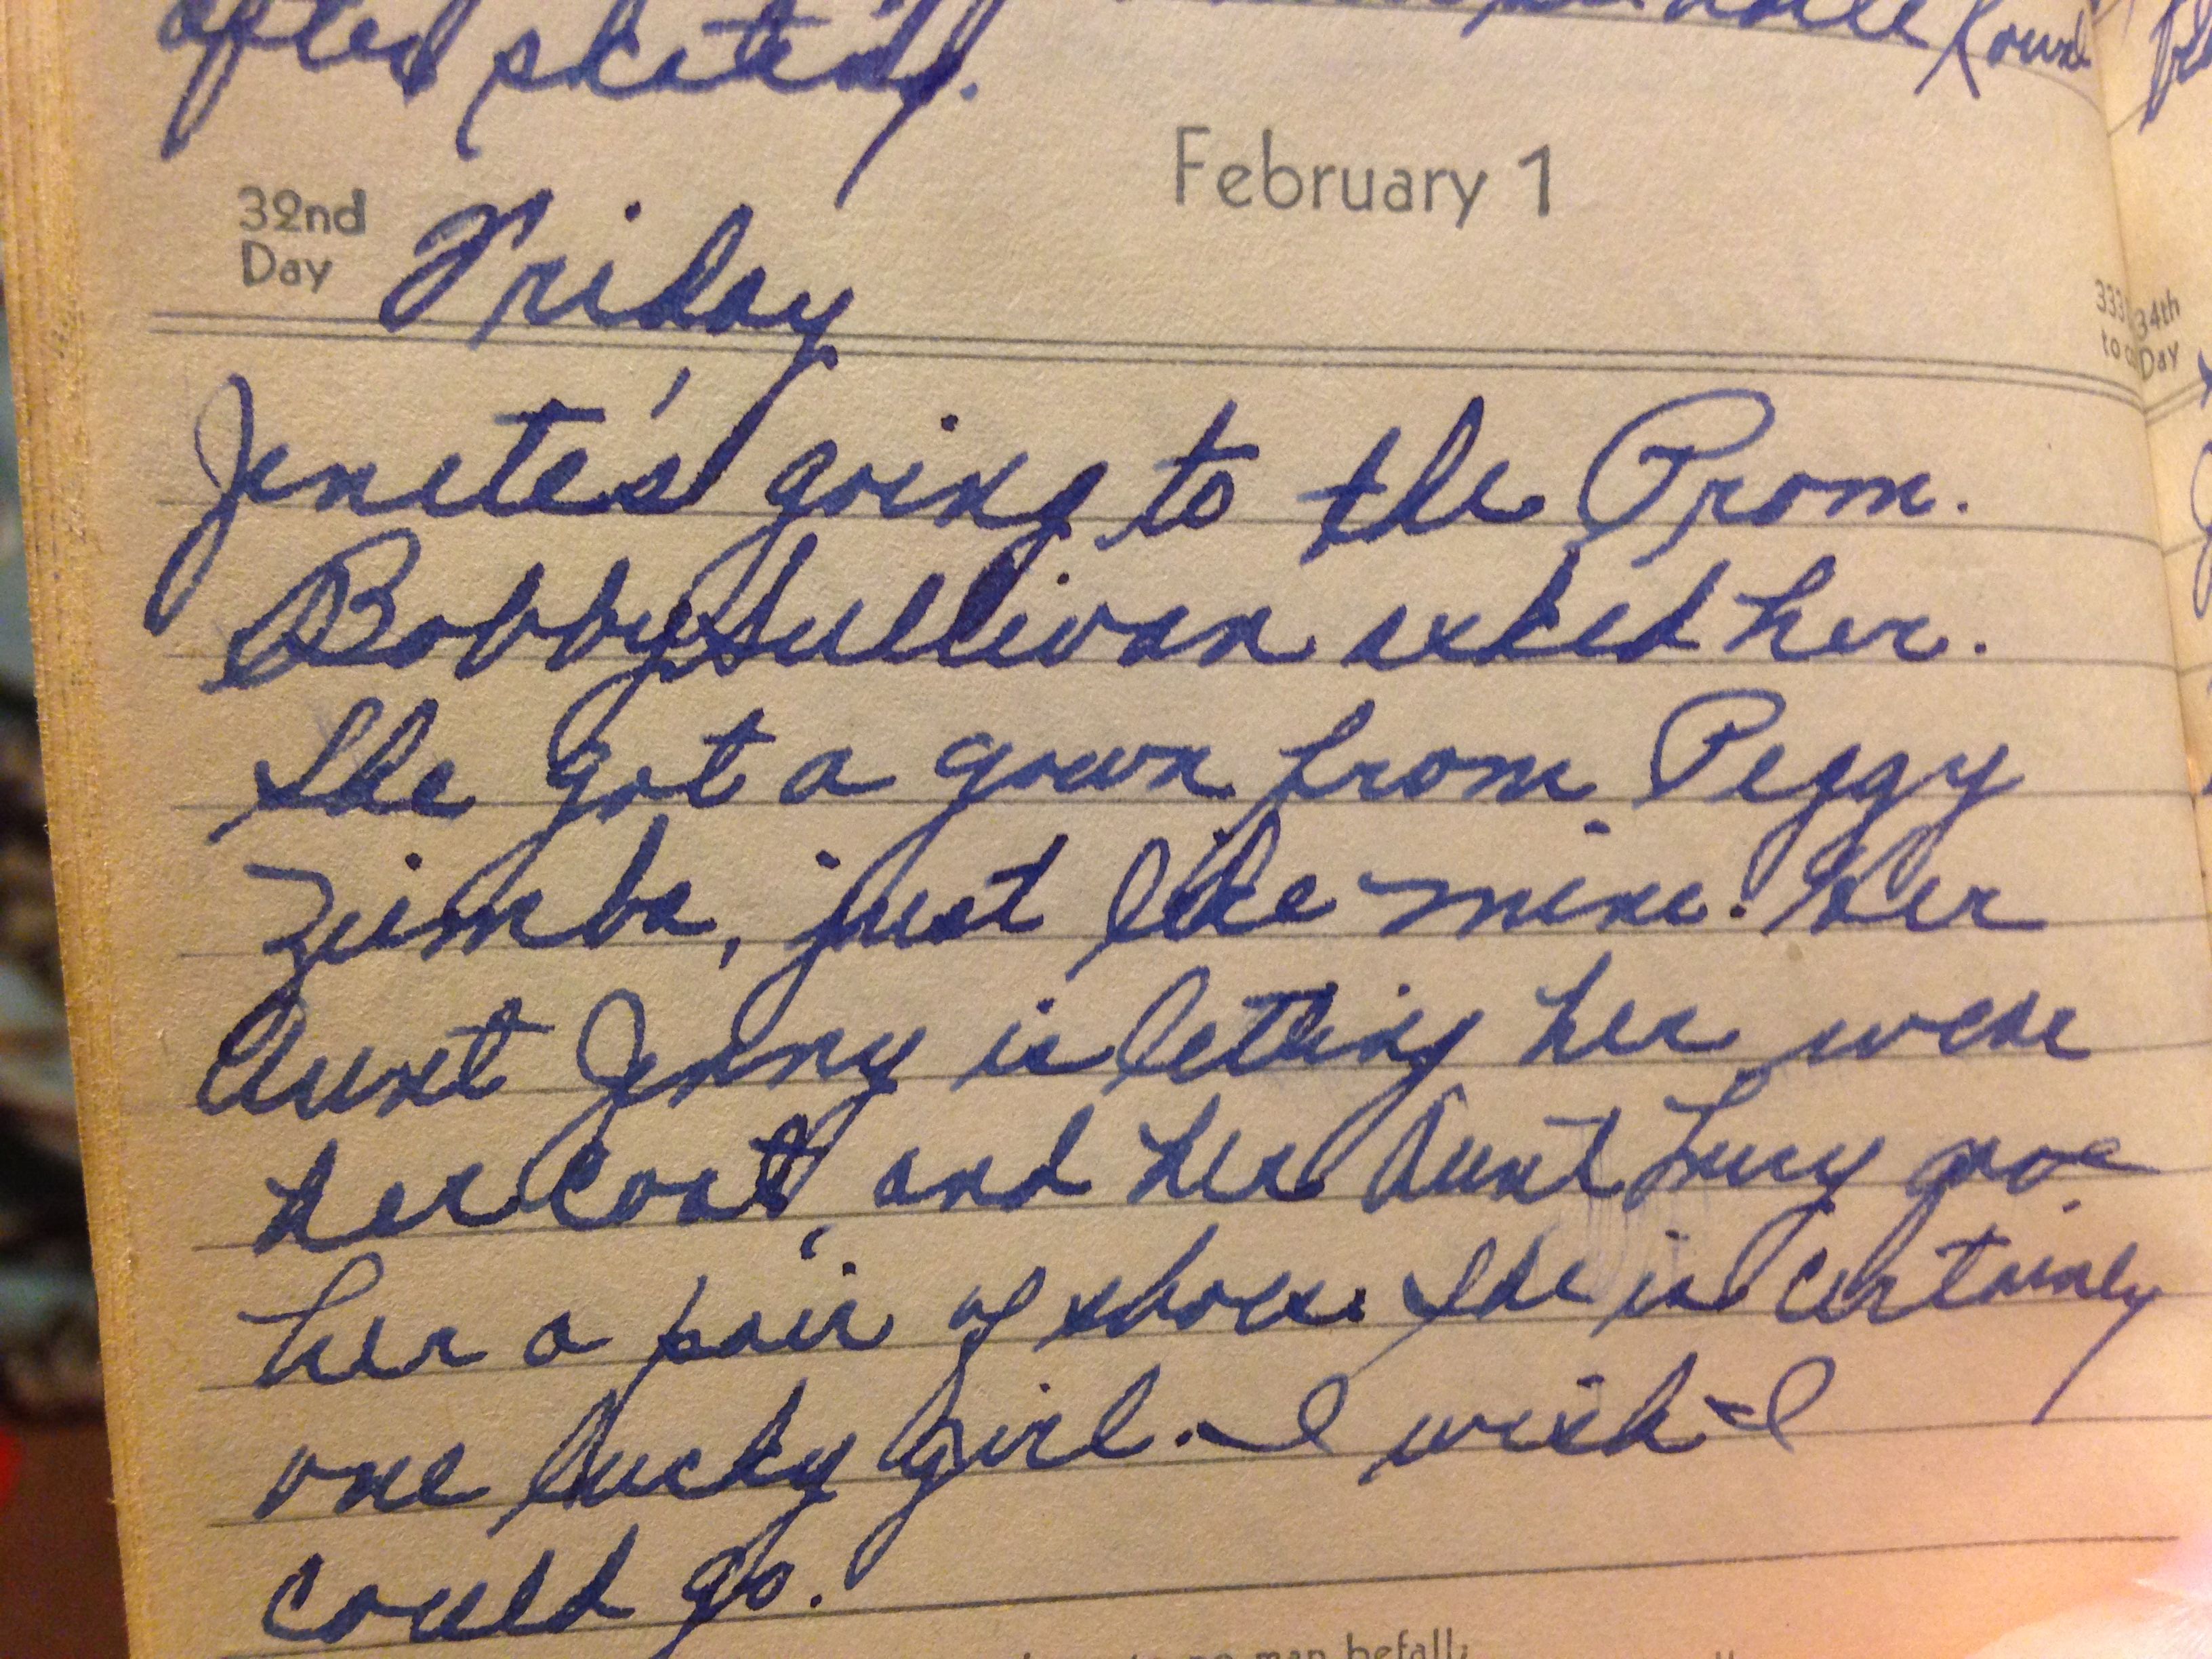 after skating.
February 1
32nd
Day
Friday
Jenete's going to the Prom.
Bobby Sullivan asked her.
She got a gown from Peggy
Zumba, just like mine. Her
Aunt Jenny is letting her wear
her coat, and her Aunt Lucy gave
her a pair of shoes. She is certainly
one lucky girl. I wish I
could go.
34th
Day
no man befall;